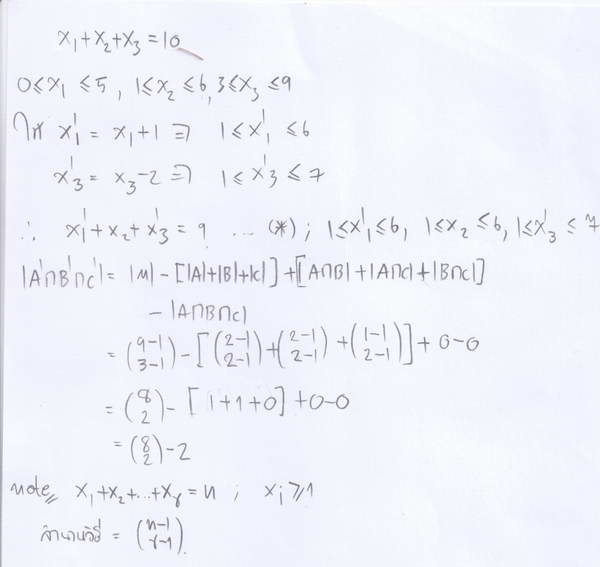 x₁+x₂+x₃=10
0≤x₁≤5, 1≤x₂≤6, 3≤x₃≤9
ให้ x₁' = x₁+1 ⇒ 1≤x₁'≤6
x₃' = x₃-2 ⇒ 1≤x₃'≤7
∴ x₁'+x₂+x₃' = 9 ... (*) ; 1≤x₁'≤6, 1≤x₂≤6, 1≤x₃'≤7
|A'∩B'∩C'| = |M| - [|A|+|B|+|C|] + [|A∩B|+|A∩C|+|B∩C|]
- |A∩B∩C|
= (9-1 3-1) - [(2-1 2-1)+(2-1 2-1)+(1-1 2-1)] + 0-0
= (8 2) - [1+1+0] + 0-0
= (8 2) - 2
note x₁+x₂+...+xᵣ = n ; xᵢ ≥ 1
จำนวนวิธี = (n-1 r-1)